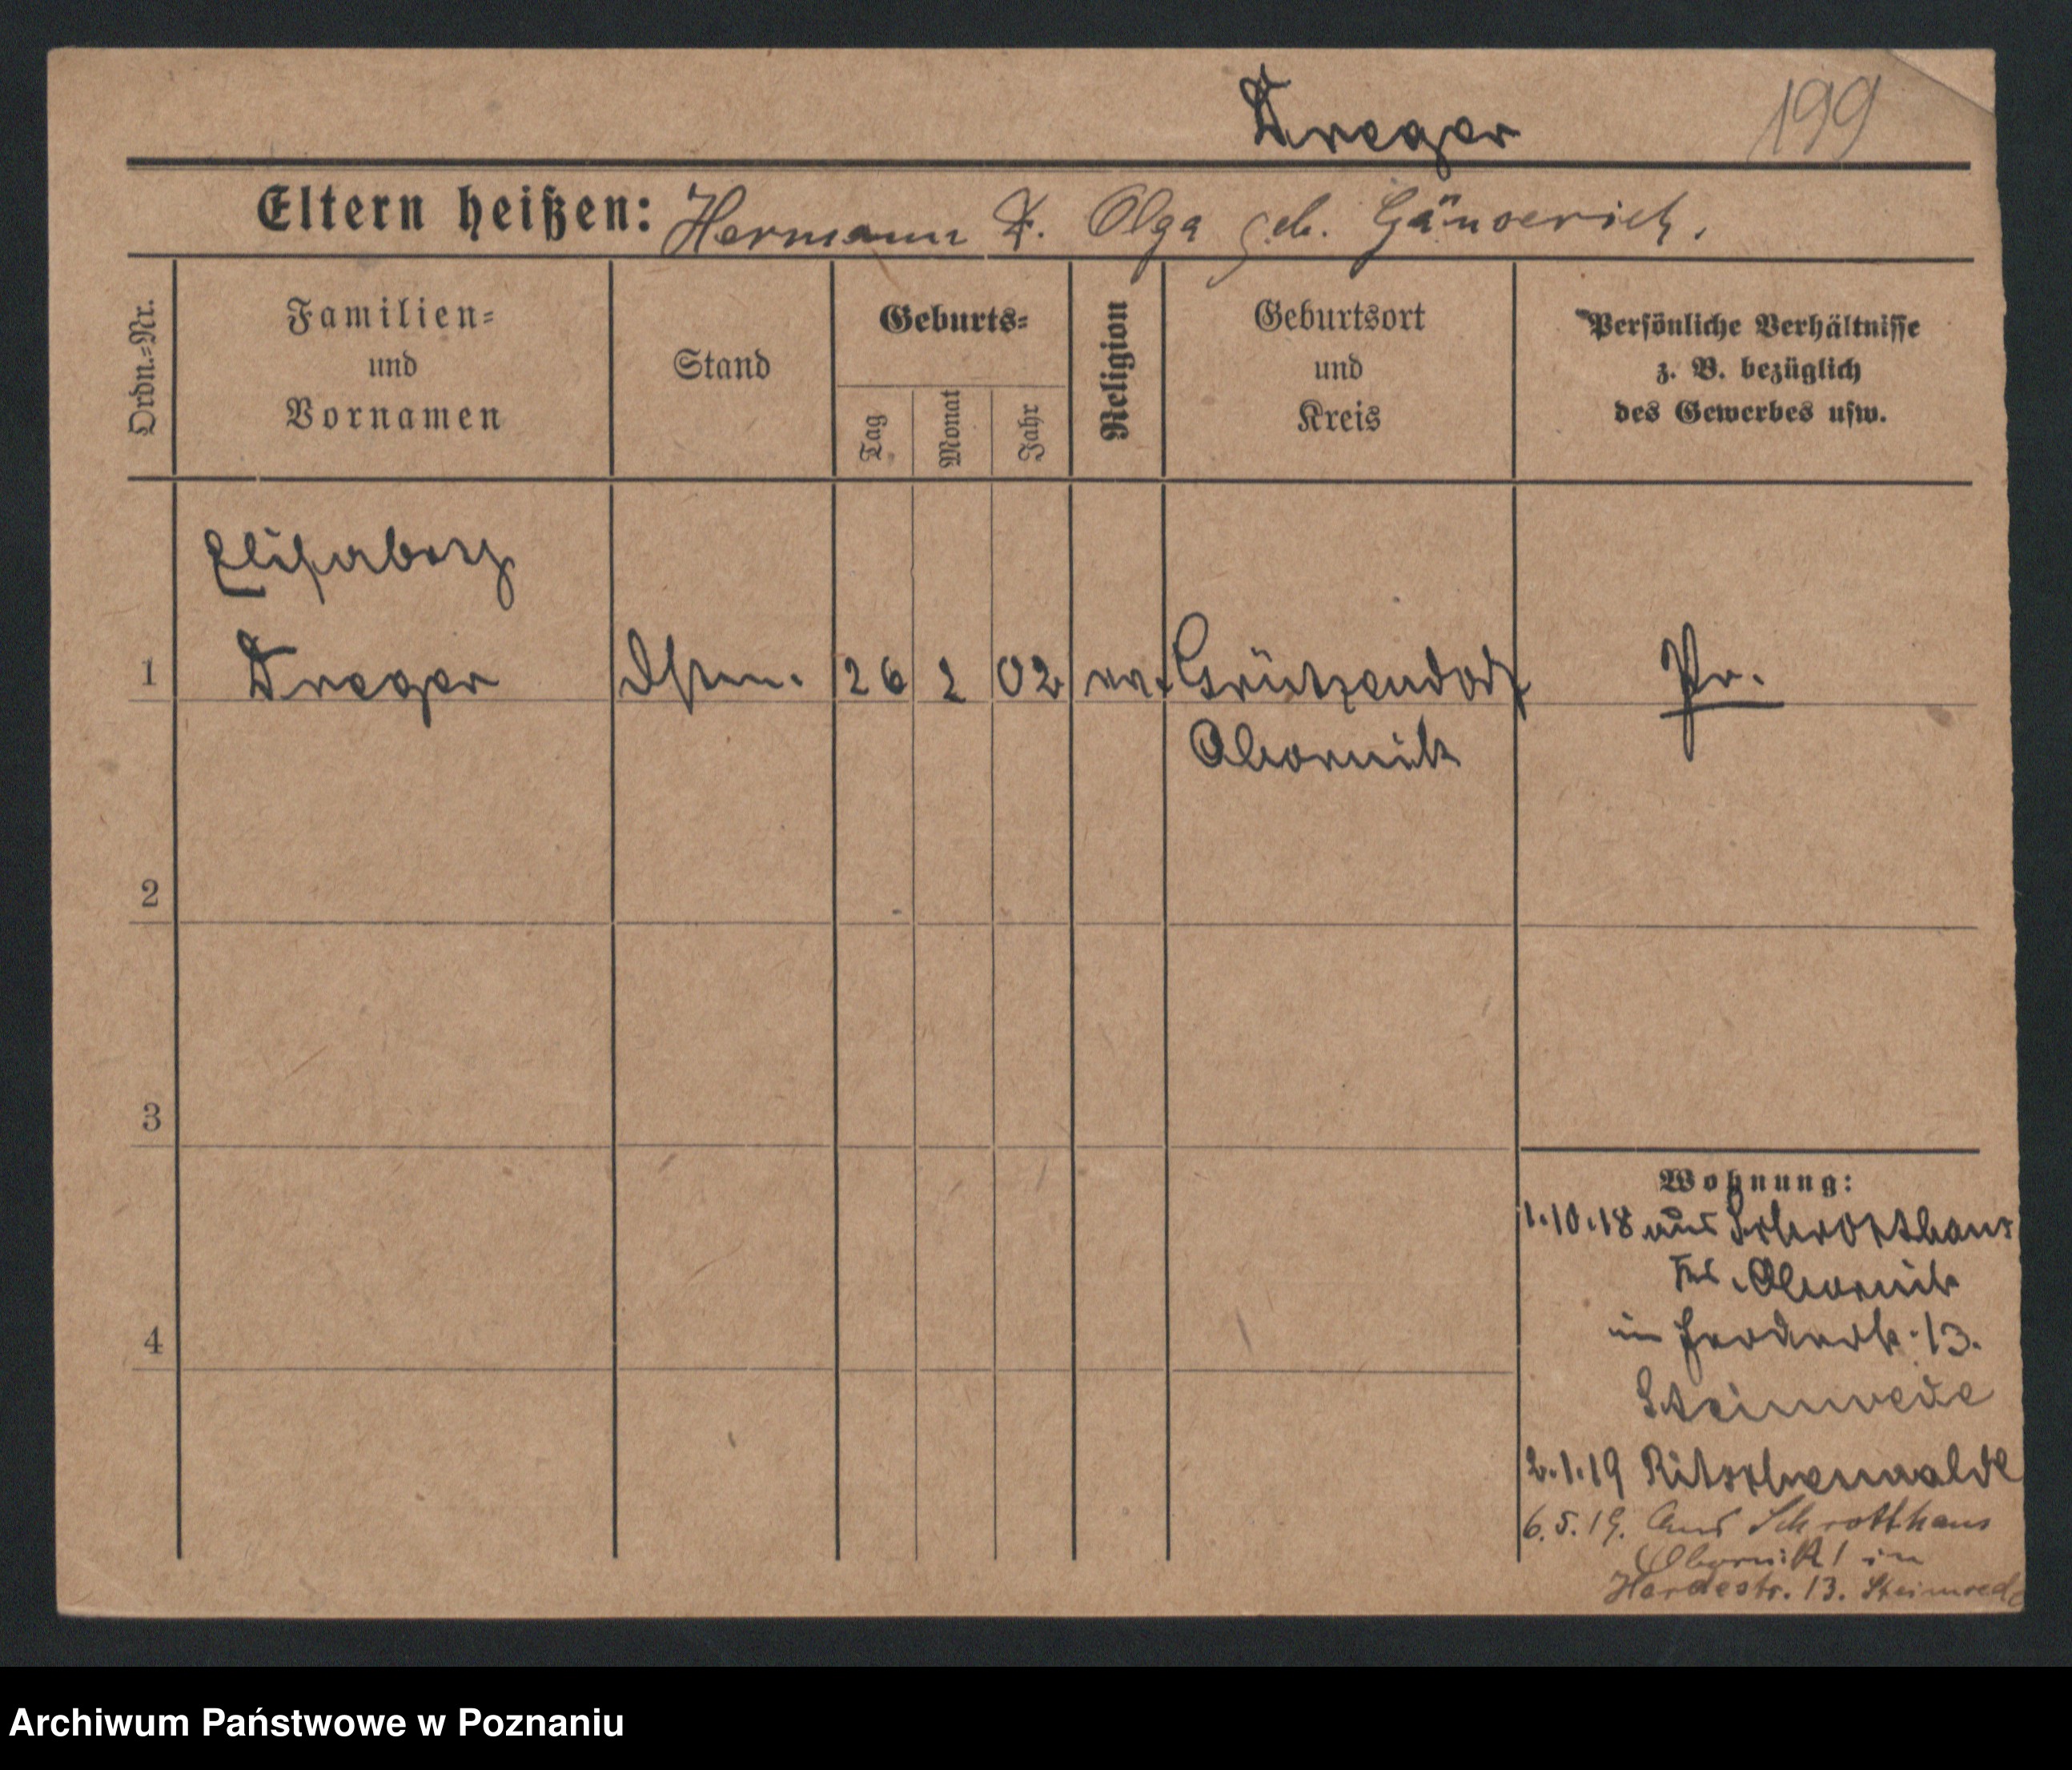 Dreger 199
Eltern heißen: Hermann D. Olga geb. Gänserich.
Ordn.=Nr.
Familien=
und
Vornamen
Stand
Geburts=
Tag
Monat
Jahr
Religion
Geburtsort
und
Kreis
Persönliche Verhältnisse
z. B. bezüglich
des Gewerbes usw.
Elisabeth
1 Dreger 26 2 02 ev. Grützendorf Pr.
Obornik
2
3
4
Wohnung:
1.10.18 aus Schrotthaus
Krs. Obornik
in 13.
Steinwede
2.1.19 Ritschenwalde
6.5.19. aus Schrotthaus
Obornik in
Hardestr. 13. Steinwede
Archiwum Państwowe w Poznaniu